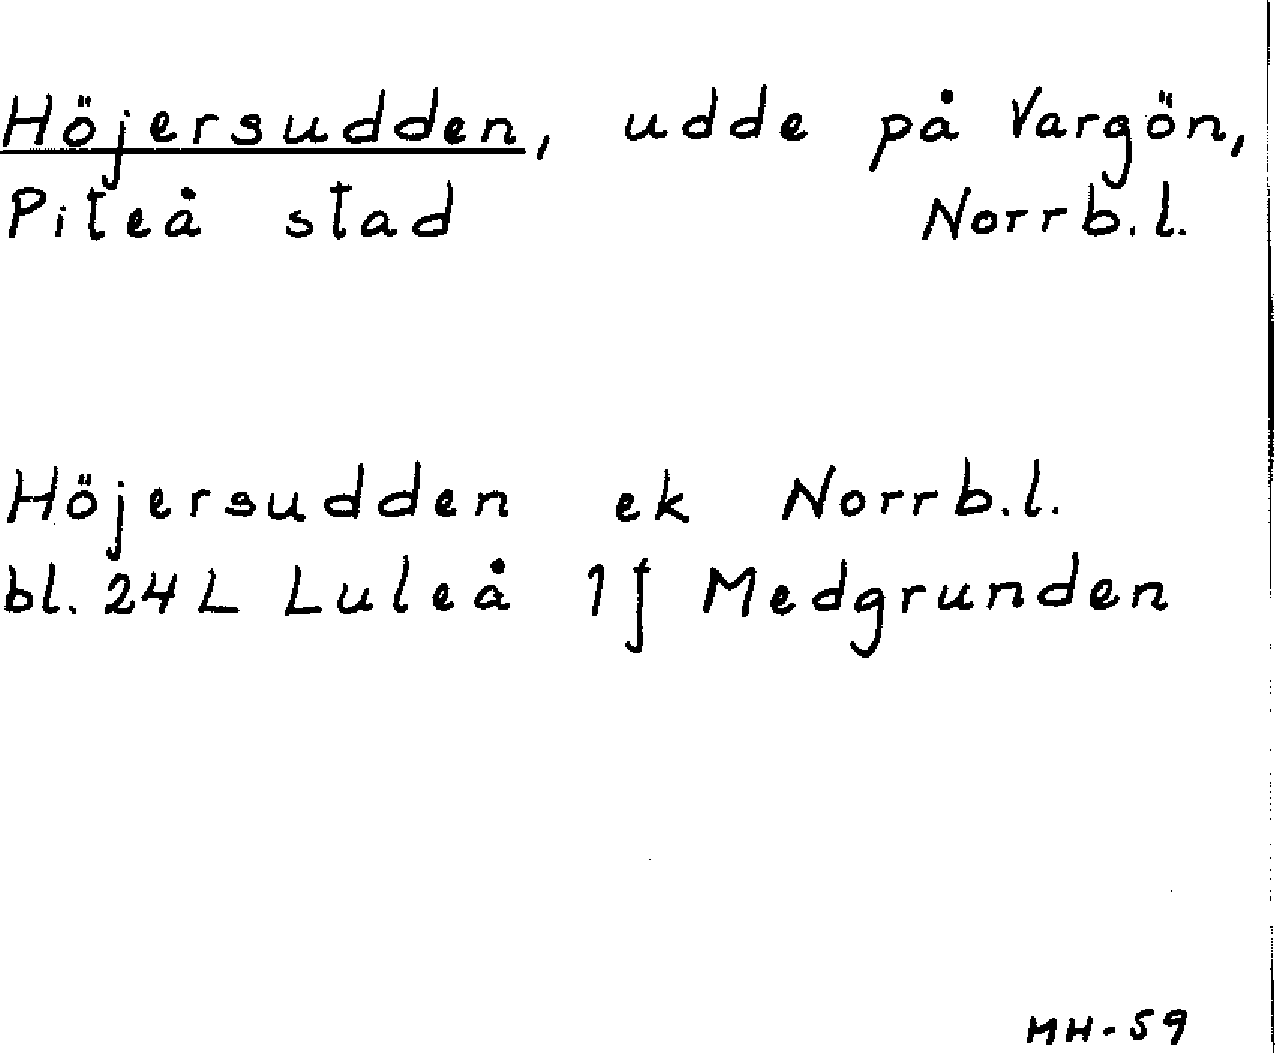 Höjersudden, udde på Vargön,
Piteå stad Norrb.l.
Höjersudden ek Norrb.l.
bl. 24L Luleå 1f Medgrunden
MH-59